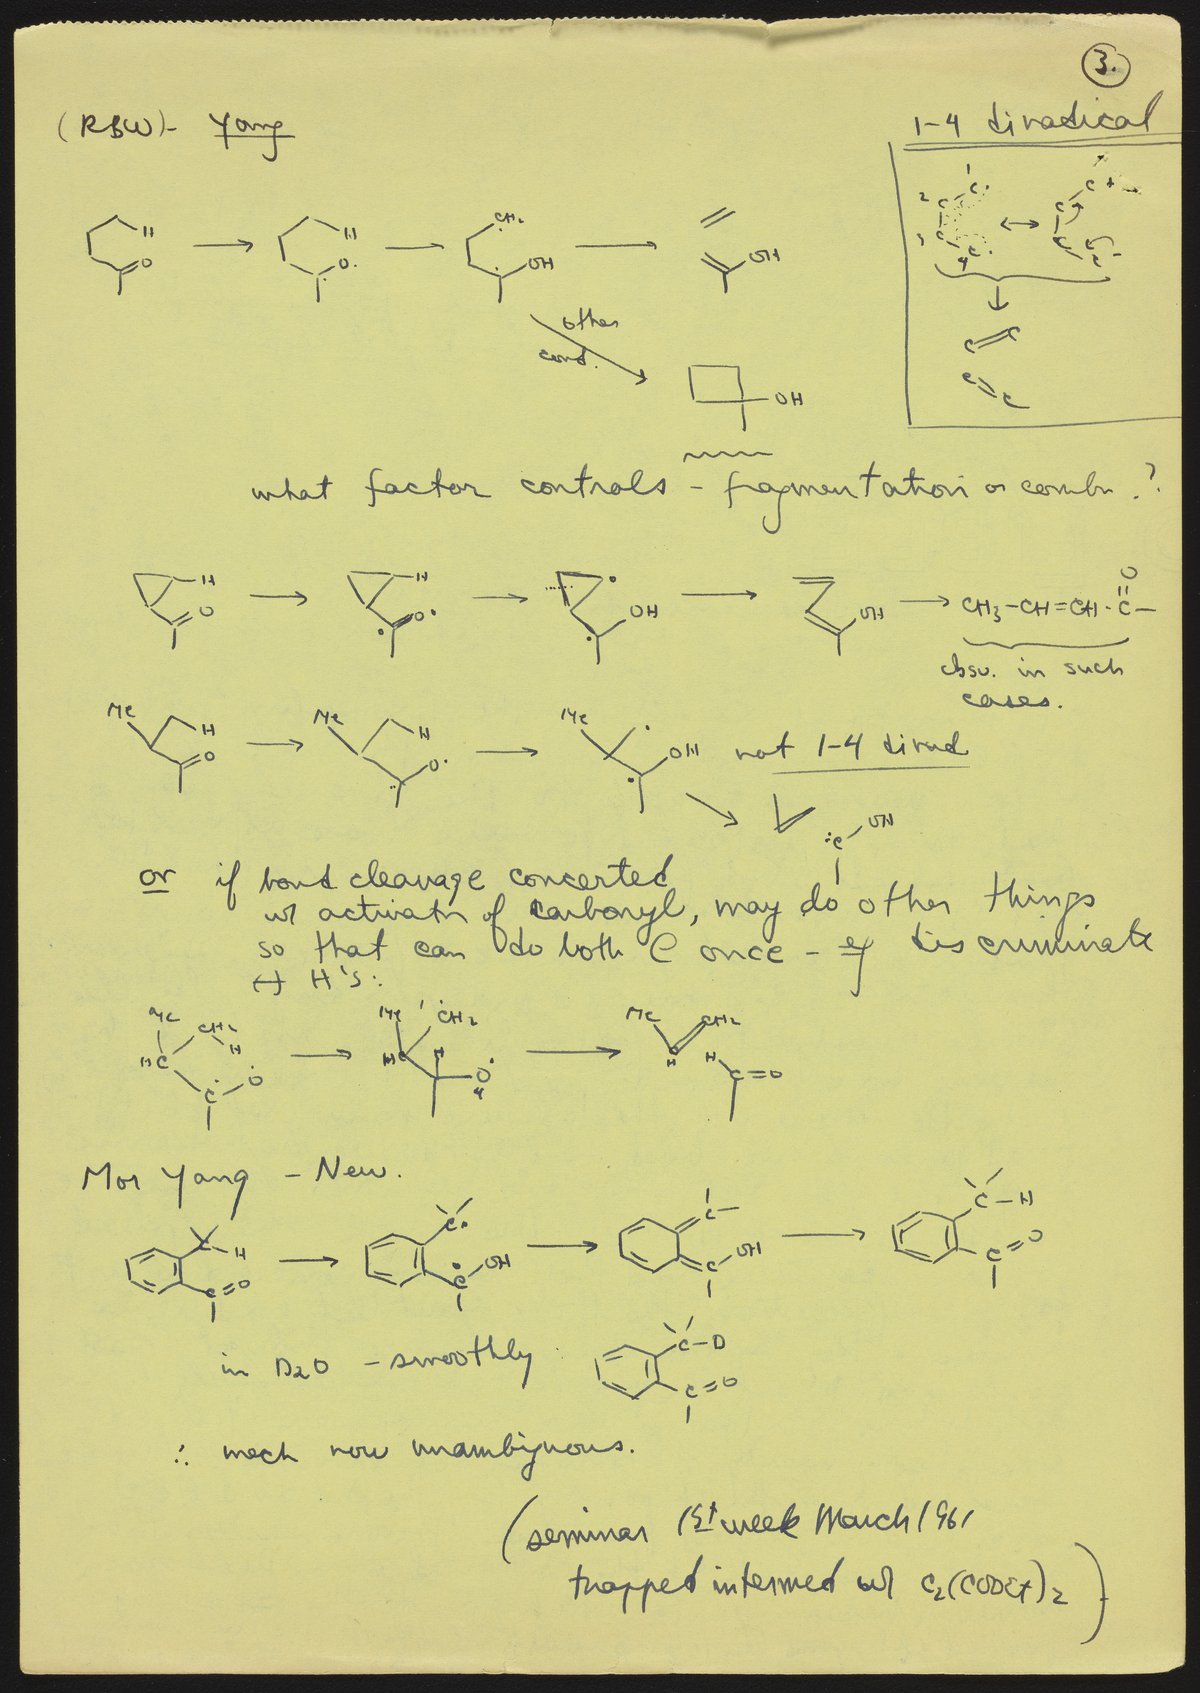 3.
(RBW)- Yang
1-4 diradical
1 C·
2 C
3 C
C· 4
C+
C
C
C
H
O
H
O·
CH₂
OH
OH
C C
C C
other
cond.
OH
what factor controls - fragmentation or combn.?
H
O
H
O·
OH
OH
CH₃-CH=CH-C-
O
obsv. in such
cases.
Me
H
O
Me
H
O·
Me
OH
not 1-4 dirad
:C OH
or if bond cleavage concerted
w/ activatn of carbonyl, may do other things
so that can do both @ once - eg discriminate
↔ H's:
Me
CH₂
HC
H
C
O
Me
1
CH₂
HC
H
O
4
Me
CH₂
H
H
C=O
Mor Yang - New.
C-H
C=O
C·
C OH
C
C OH
C-H
C=O
in D₂O - smoothly
C-D
C=O
∴ mech now unambiguous.
(seminar 1st week March 1961
trapped intermed w/ C₂(COOEt)₂)